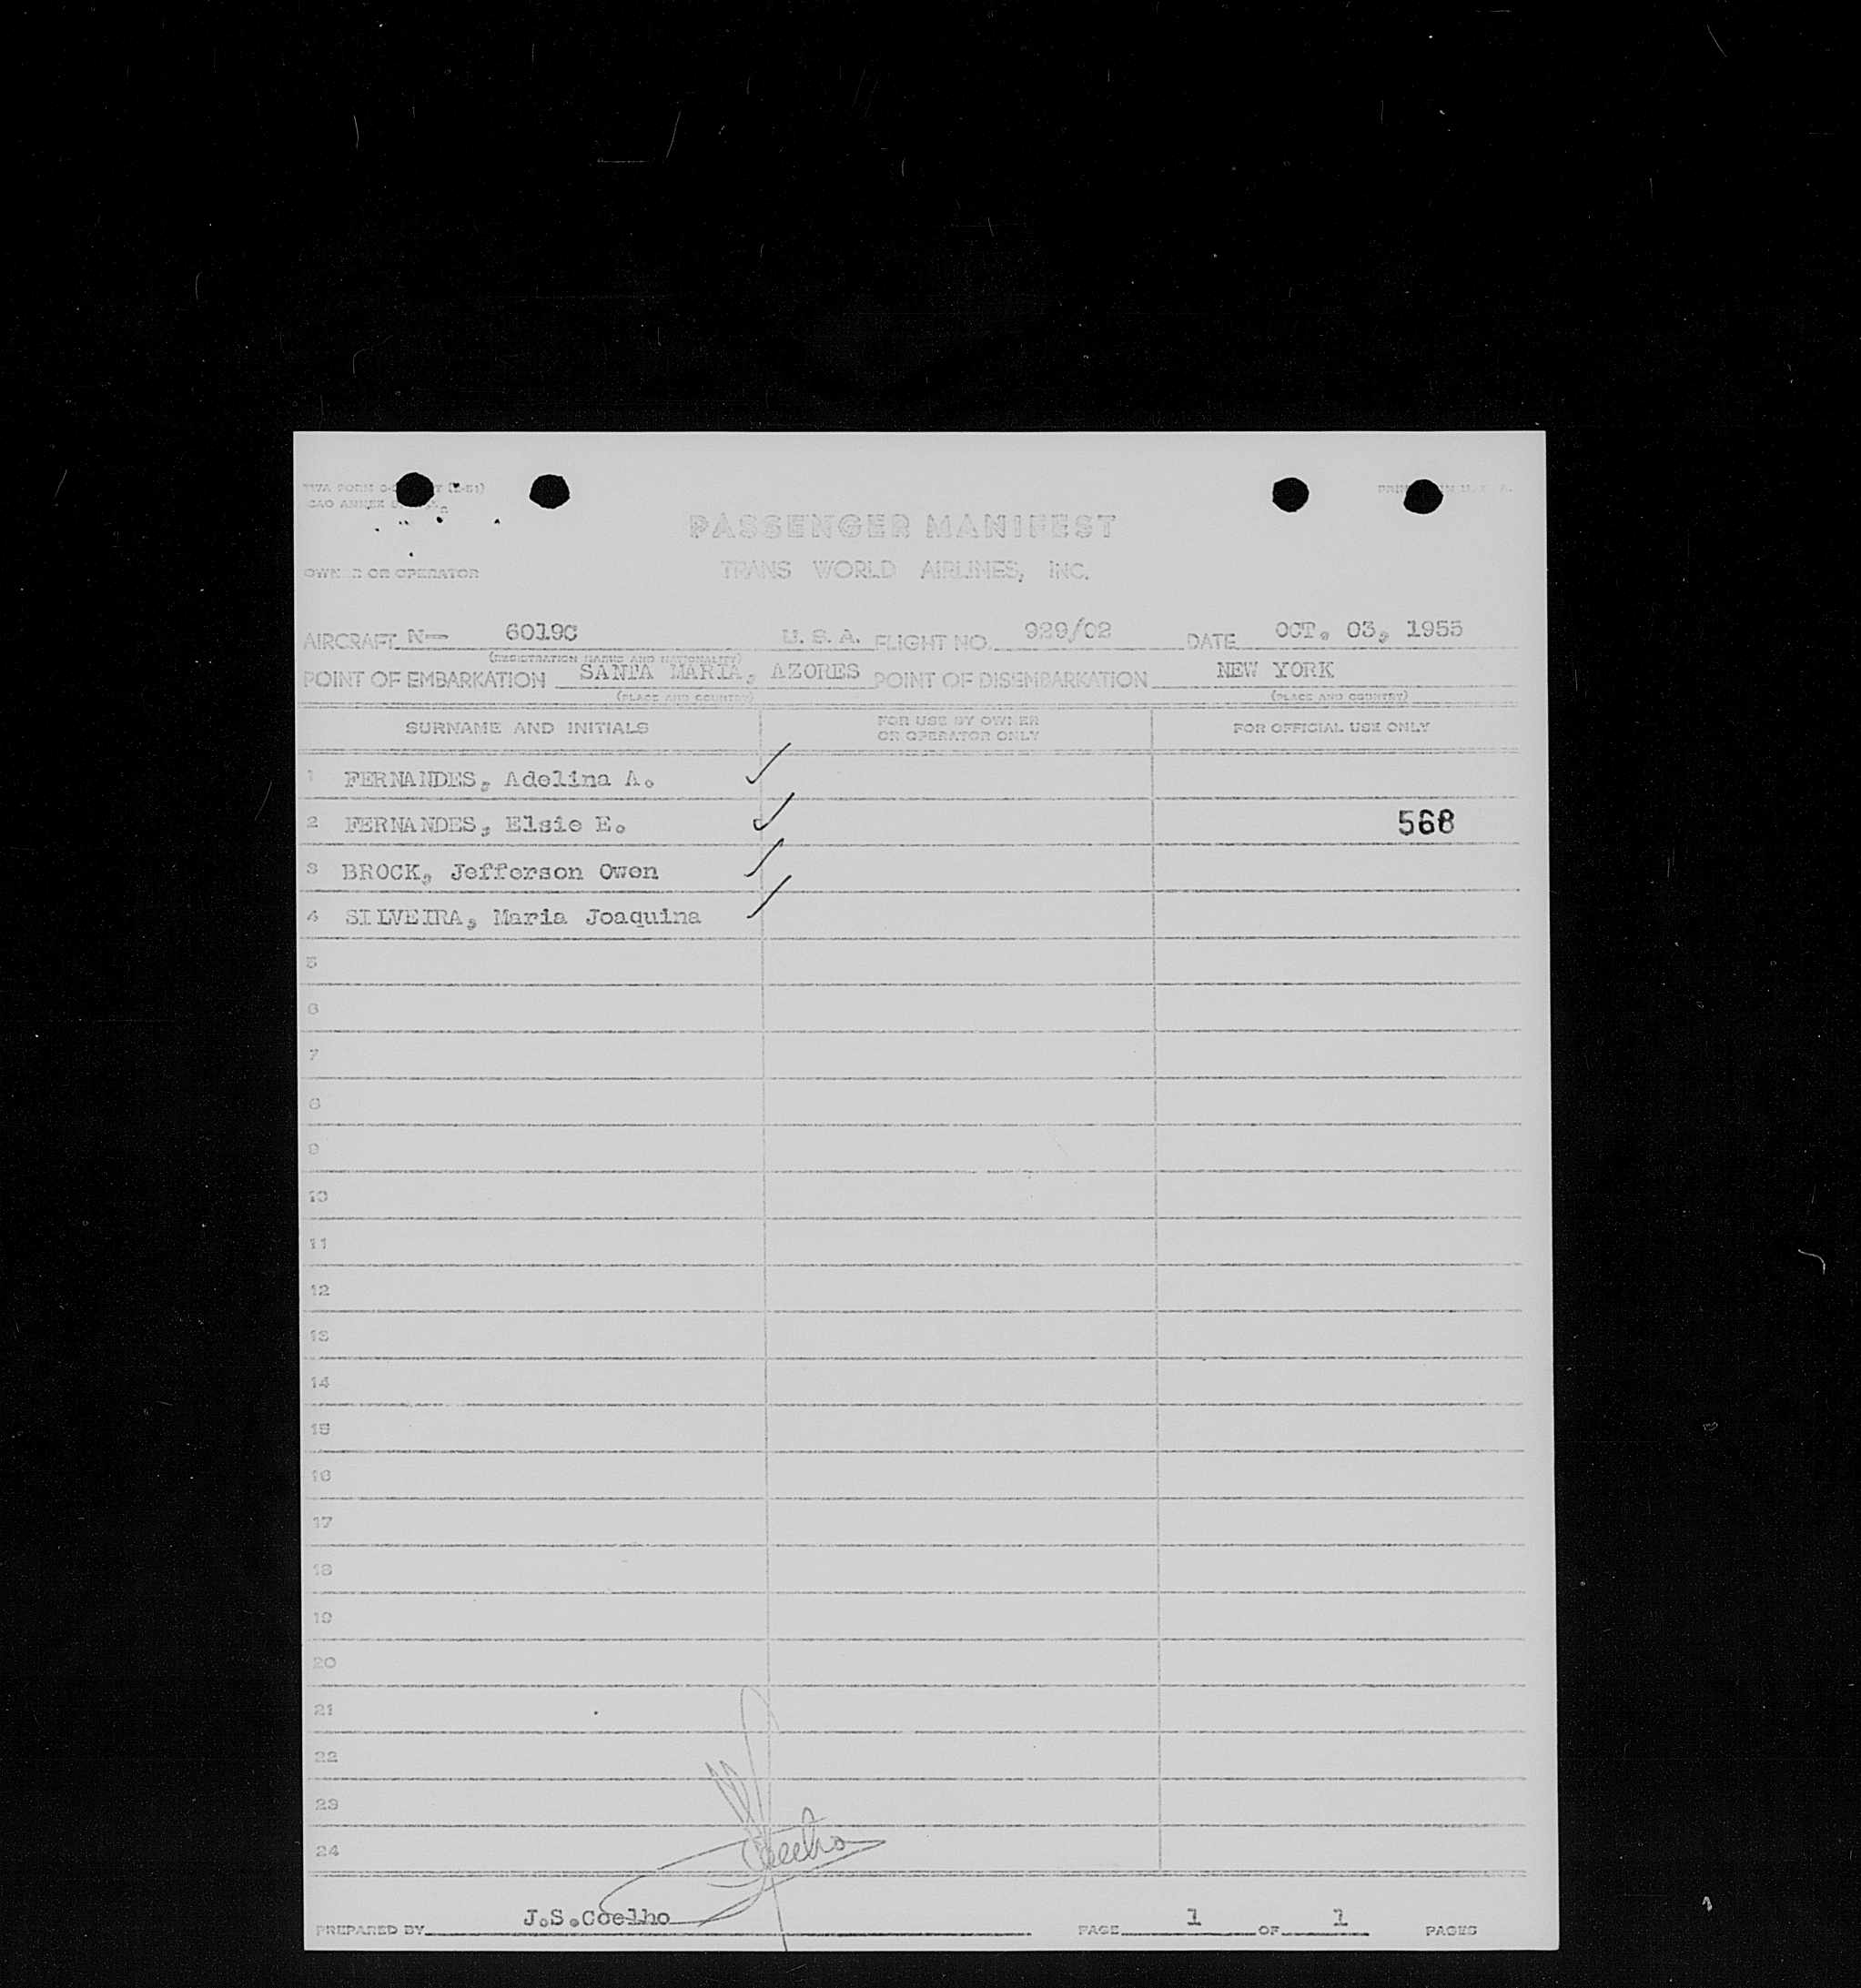 TWA FORM
ICAO ANNEX
PRINTED IN U. S. A.
PASSENGER MANIFEST
OWNER OR OPERATOR TRANS WORLD AIRLINES, INC.
AIRCRAFT N- 6019C U. S. A. FLIGHT NO. 929/02 DATE OCT. 03, 1955
(REGISTRATION MARKS AND NATIONALITY)
POINT OF EMBARKATION SANTA MARIA, AZORES POINT OF DISEMBARKATION NEW YORK
(PLACE AND COUNTRY) (PLACE AND COUNTRY)
SURNAME AND INITIALS FOR USE BY OWNER OR OPERATOR ONLY FOR OFFICIAL USE ONLY
1 FERNANDES, Adelina A.
2 FERNANDES, Elsie E. 568
3 BROCK, Jefferson Owen
4 SILVEIRA, Maria Joaquina
5
6
7
8
9
10
11
12
13
14
15
16
17
18
19
20
21
22
23
24
Coelho
PREPARED BY J.S.Coelho PAGE 1 OF 1 PAGES